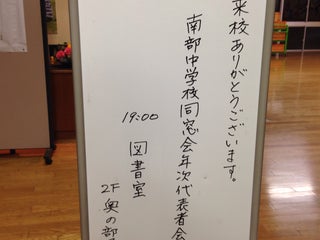 来校ありがとうございます。
南部中学校同窓会年次代表者会
19:00 図書室
2F 奥の部